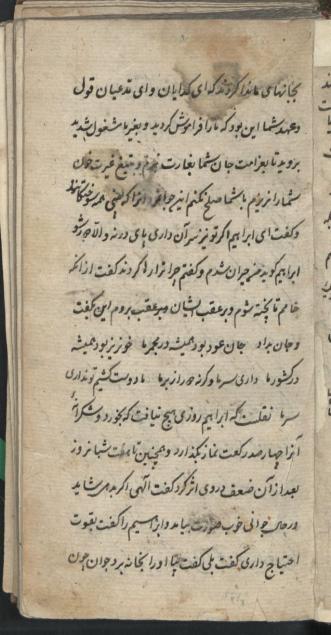 بجانهای ما ندا کردند که ای کدایان و ای مدعیان قول
و عهد شما این بود که ما را فراموش کردید و بغیر ما مشغول شدید
بروید تا بغرامت جان شما بغارت نبریم و بتیغ غیرت خون
شما را نریزیم با شما صلح نکنیم این جوانمردان را که
و گفت ای ابراهیم اگر تو نیز سر آن داری پای در نه و الا دور شو
ابراهیم گوید من حیران شدم و گفتم چرا ترا رها کردند گفت از آنکه
خامم تا پخته شوم و بر عقب ایشان من بر عقب بروم این گفت
و جان بداد جان عود بود همیشه در مجمر ما خونریز بود همیشه
در کشور ما داری سر ما و کرنه دور از بر ما ما دوست کشیم تو نداری
سر ما نقلست که ابراهیم روزی هیچ نیافت که بخورد و شکرانه
آنرا چهار صد رکعت نماز بگذارد و همچنین تا هفت شبانروز
بعد از آن ضعف در وی اثر کرد گفت الهی اگر بدهی شاید
در حال جوانی خوب صورت بیامد و ابراهیم را گفت بقوت
احتیاج داری گفت بلی گفت بیا او را بخانه برد جوان چون